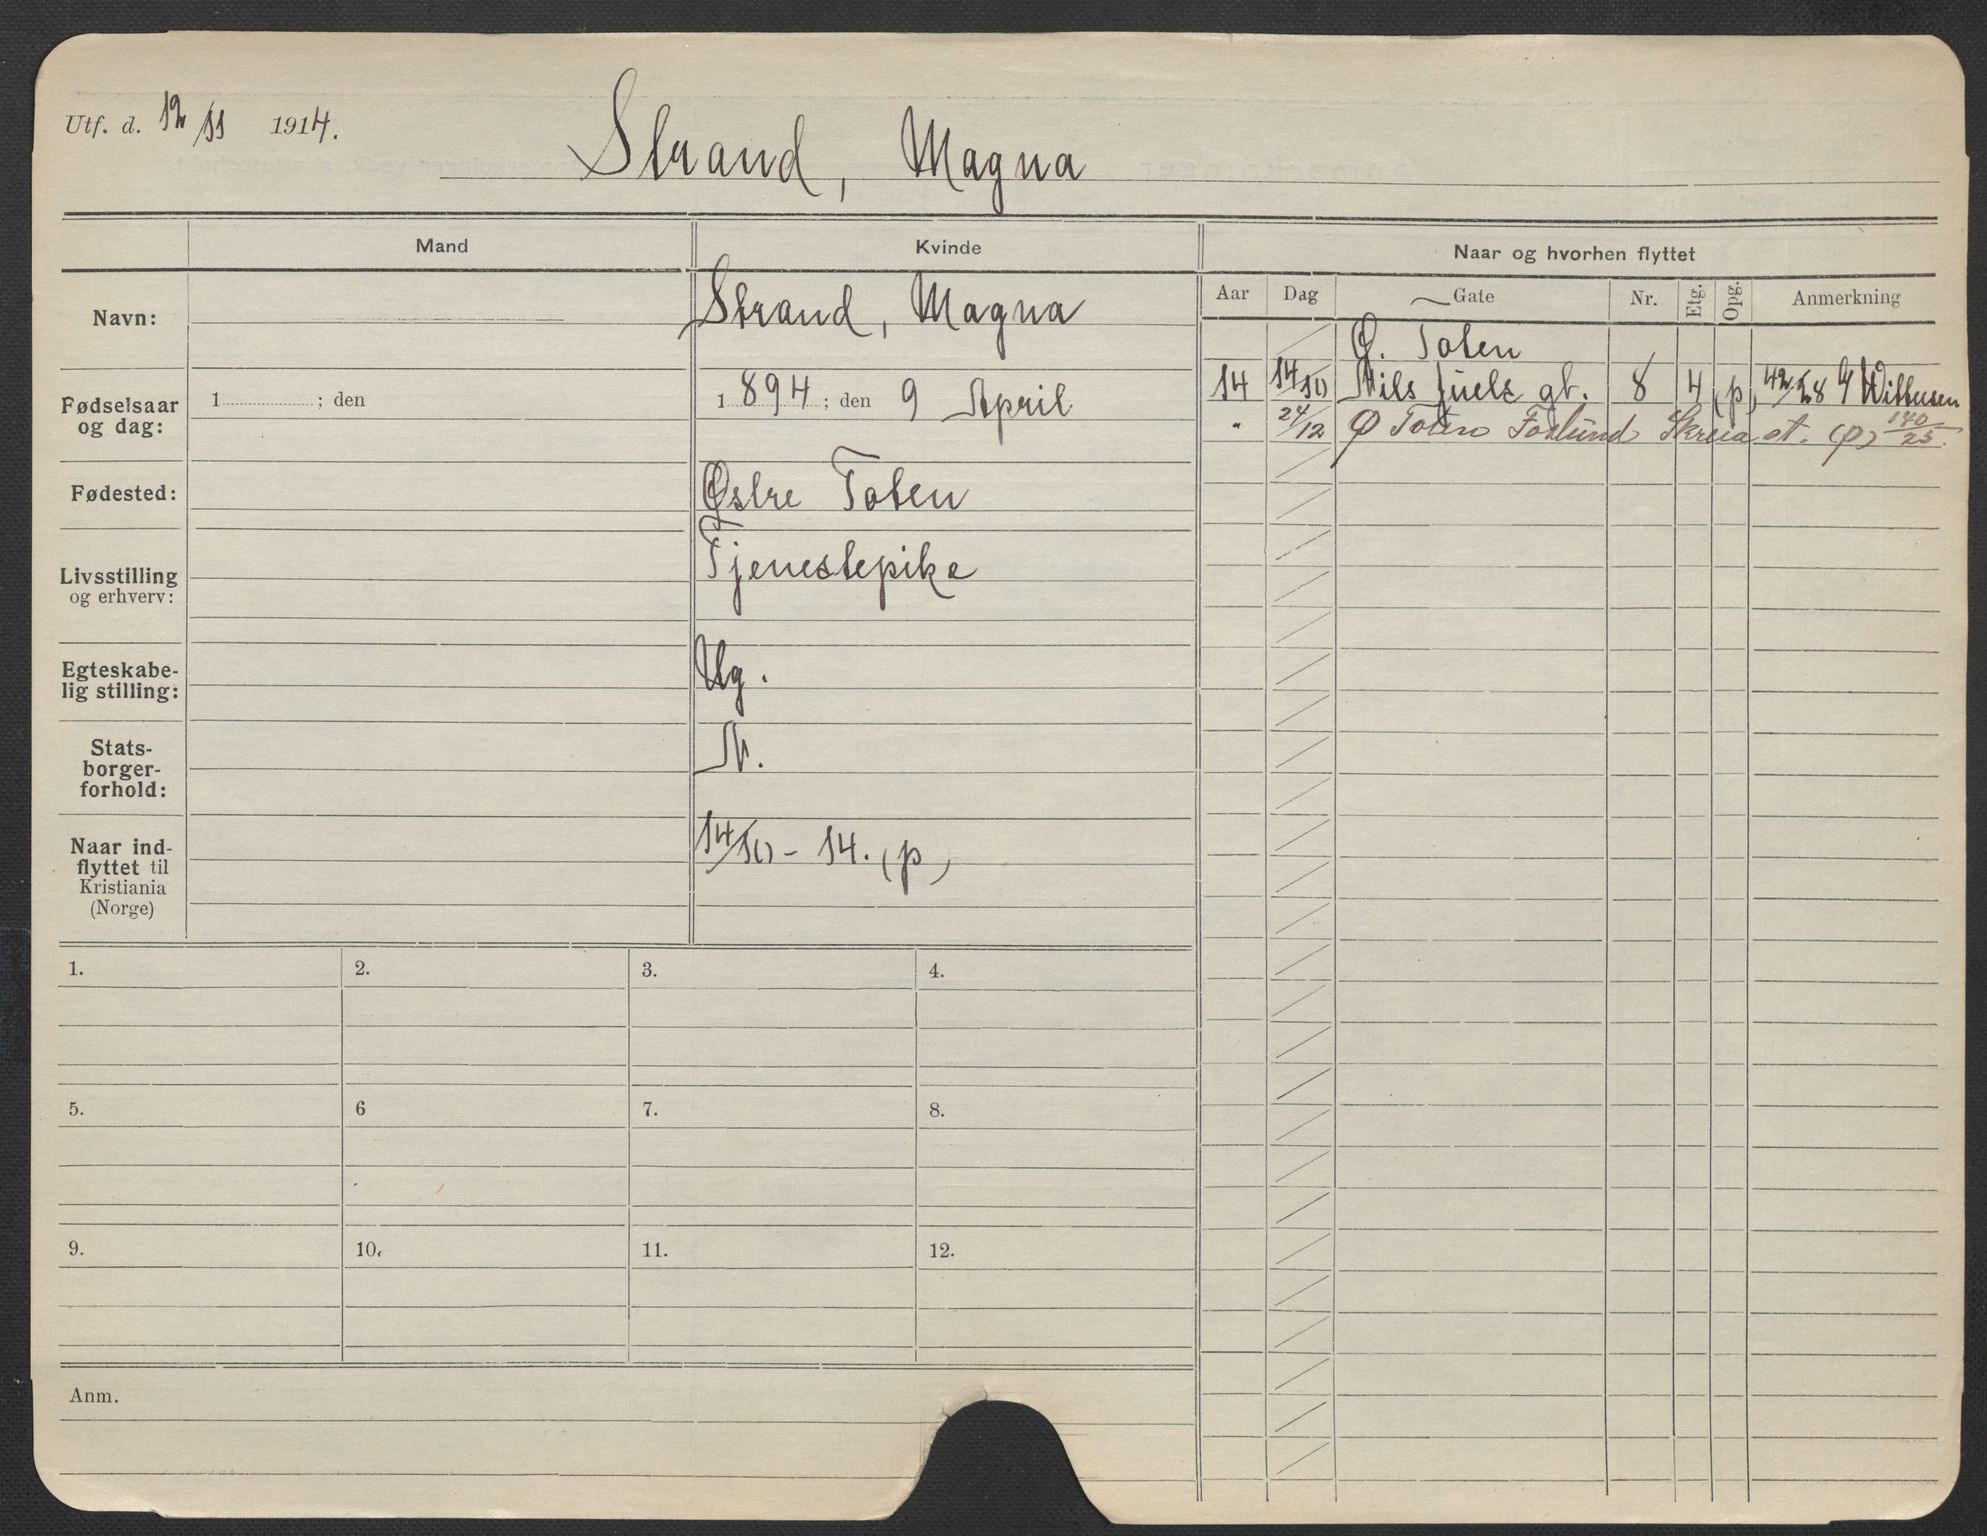 Utf. d. 12/11 1914.
Strand, Magna
Mand
Kvinde
Naar og hvorhen flyttet
Navn:
Strand, Magna
Fødselsaar og dag:
1 ; den
1 894 ; den 9 April
Fødested:
Østre Toten
Livsstilling og erhverv:
Tjenestepike
Egteskabe-
lig stilling:
Ug.
Stats-
borger-
forhold:
N.
Naar ind-
flyttet til
Kristiania
(Norge)
14/10 - 14. (p)
Aar Dag Gate Nr. Etg. Opg. Anmerkning
Ø. Toten
14 14/10 Nils Juels gt. 8 4 (p) 42/28 Wittusen
" 24/12 Ø Toten Skreia st. (p) 140/25.
1. 2. 3. 4.
5. 6 7. 8.
9. 10. 11. 12.
Anm.